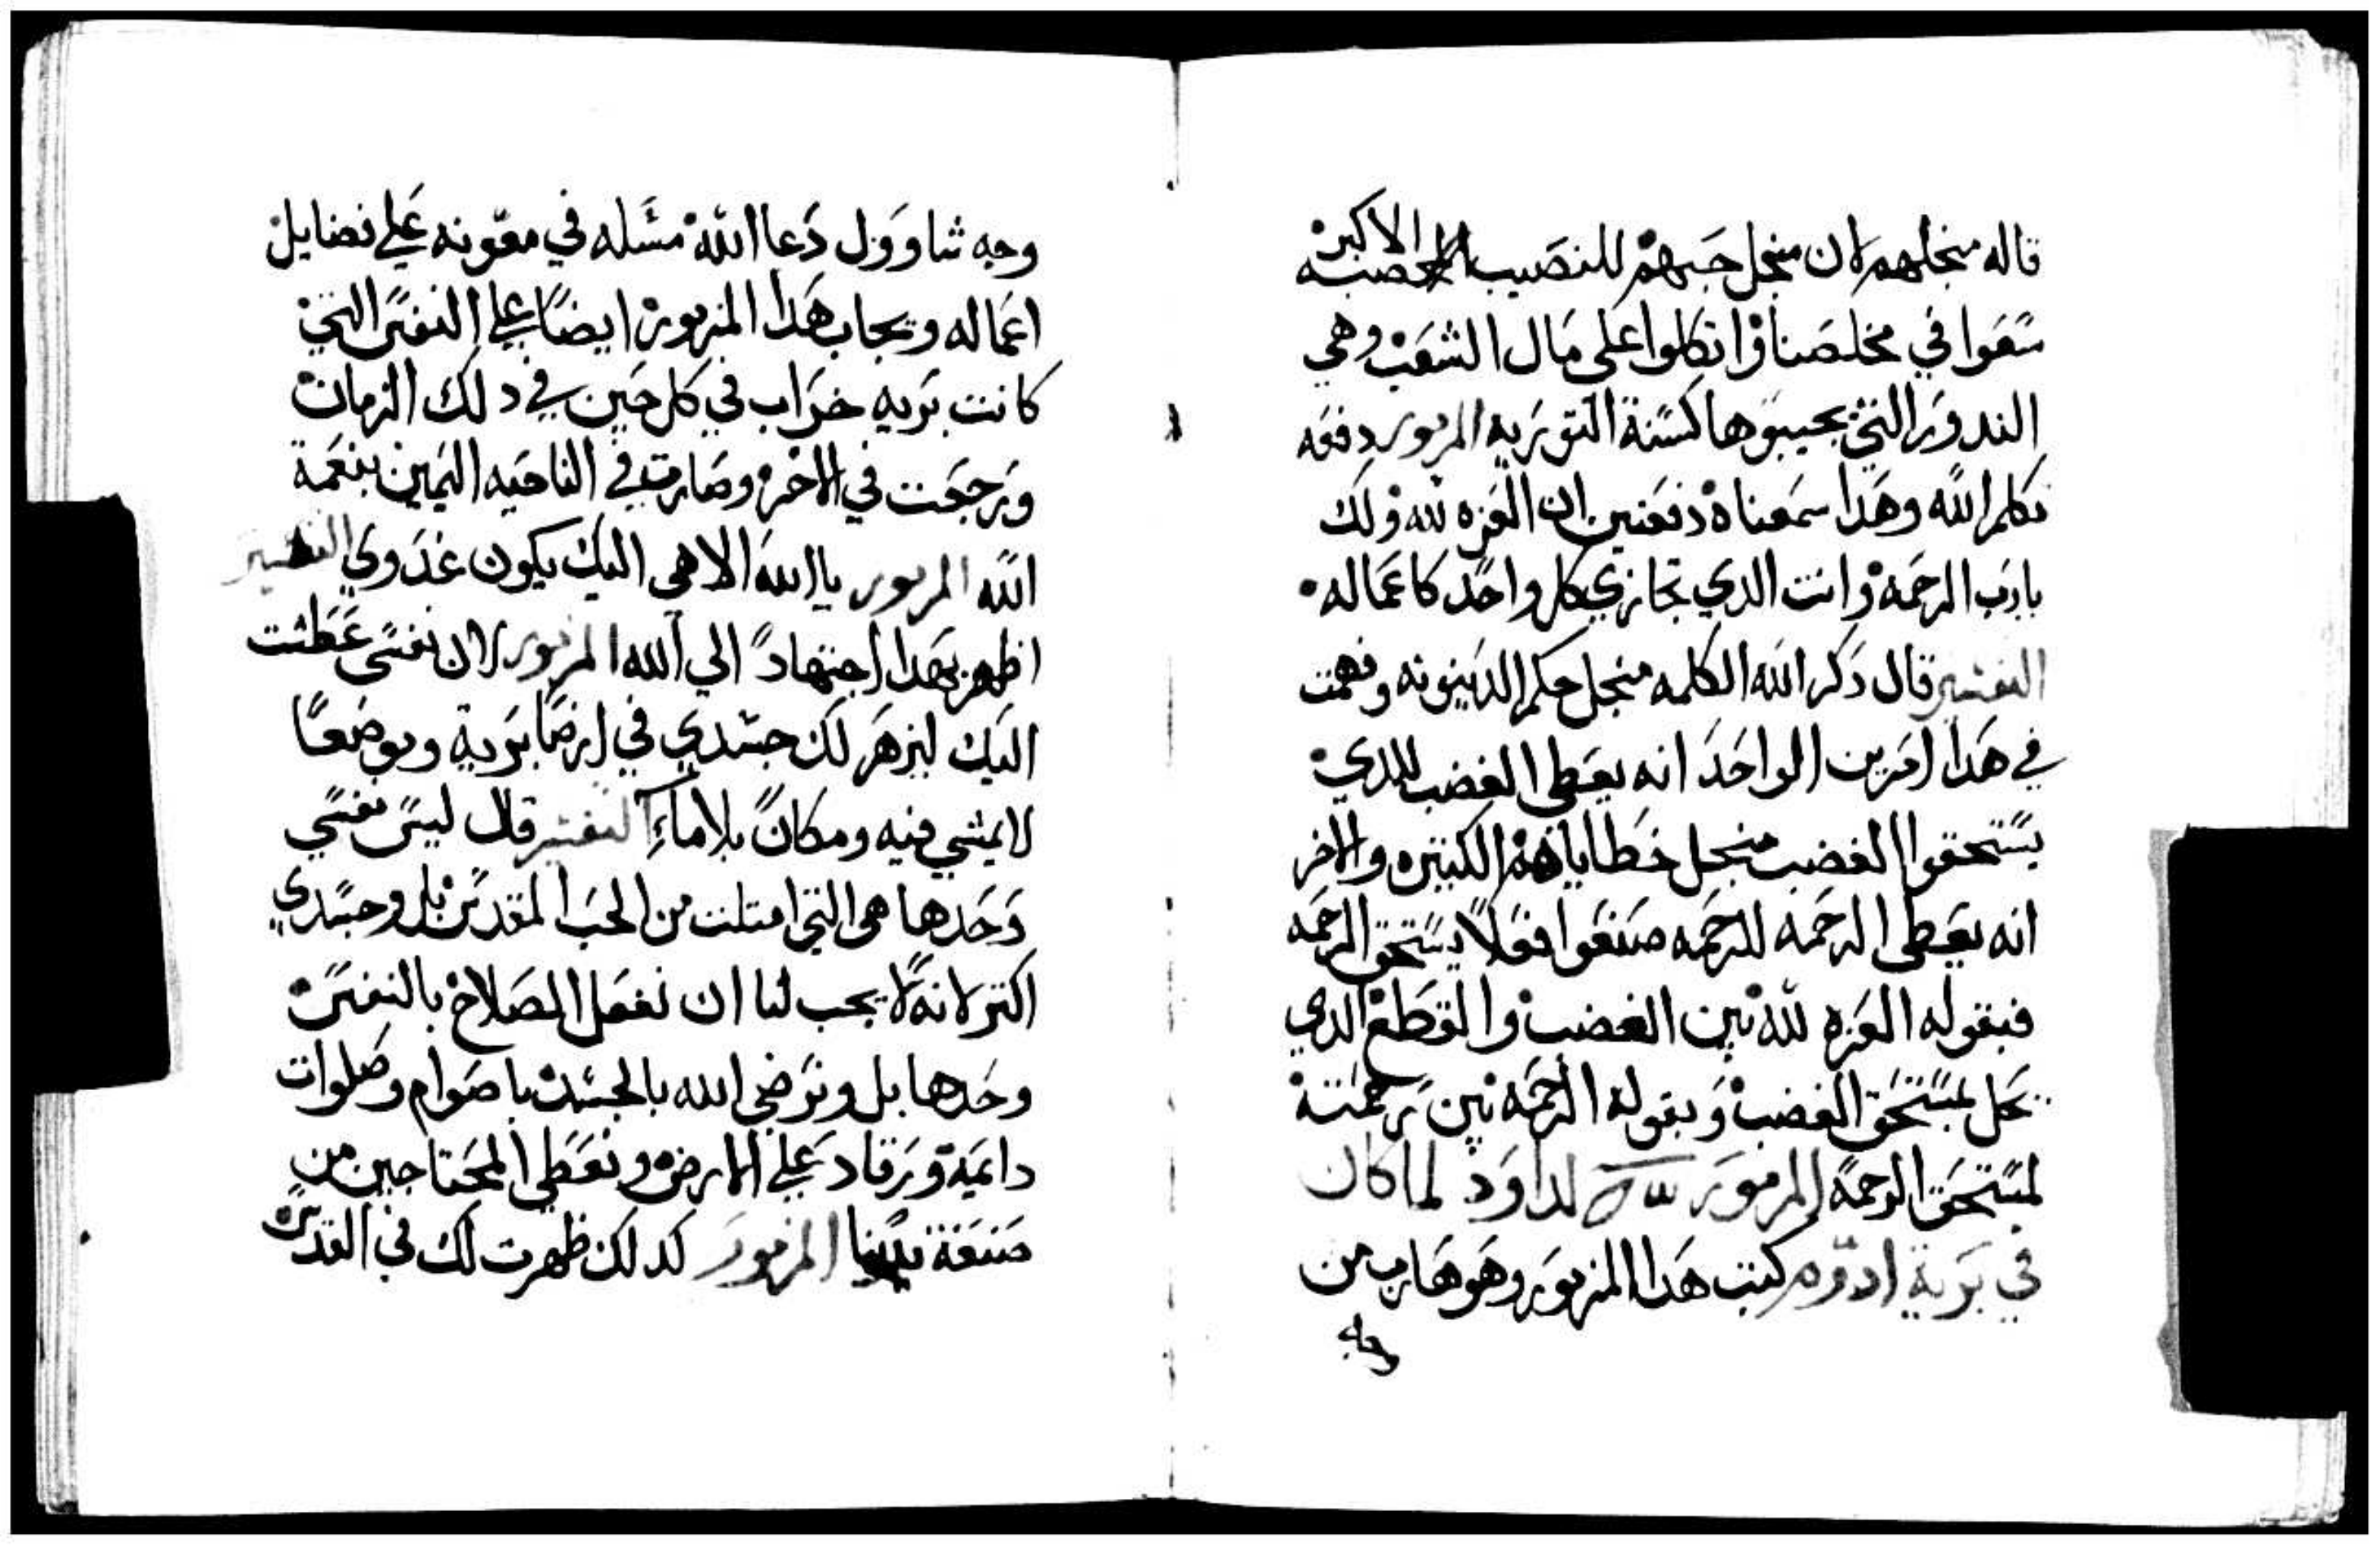 قاله منجلهم لان منجل حبهم للنصيب الاكبر
سعوا في مخلصنا واتكلوا على مال الشعب وهي
الندور التي يجيبوها كسنة التوريه المزمور دفعه
تكلم الله وهدا سمعناه دفعتين ان العزه لله ولك
يارب الرحمة وانت الدي تجازي كل واحد كاعماله
التفسير قال دكر الله الكلمه منجل حكم الدينونه وفهمت
في هدا امرين الواحد انه يعطي الغضب للدي
يستحقوا الغضب منجل خطاياهم الكتيره والاخر
انه يعطي الرحمه للرحمه صنعوا فعلاً يستحق الرحمه
فبقوله العزه لله بين الغضب والقطع الدي
يحل لمستحق الغضب وبقوله الرحمه بين رحمته
لمستحق الرحمة المزمور لداود لما كان
في برية ادوم كتب هدا المزمور وهو هارب من
وجه
وجه شاوول دعا الله مسله في معونه علي فضايل
اعماله ويجاب هدا المزمور ايضاً علي النفس التي
كانت بريه خراب في كل حين في دلك الزمان
ورجعت في الاخر وصارت في الناحيه اليمين بنعمة
الله المزمور يا الله الاهي اليك يكون غدوي التفسير
اظهر بهدا اجتهاداً الي الله المزمور لان نفسي عطشت
اليك ليزهر لك جسدي في ارضاً برية وموضعاً
لا يمشي فيه ومكاناً بلا ماءٍ التفسير قال ليس نفسي
وحدها هي التي امتلت من الحب المقدس بل وجسدي
اكتر لانه لا يجب لنا ان نفعل الصلاح بالنفس
وحدها بل ونرضي الله بالجسد باصوام وصلوات
دايمة ورقاد علي الارض ونعطي المحتاجين من
صنعة يدينا المزمور كدلك ظهرت لك في القدس